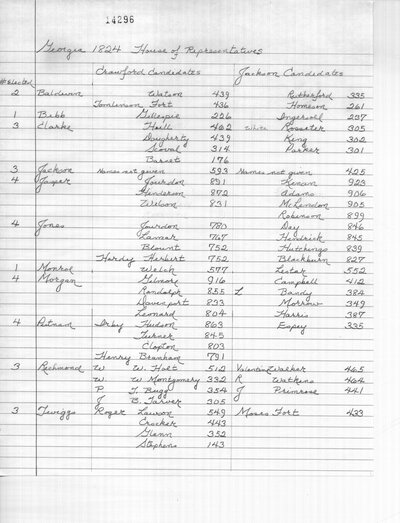 14296
Georgia 1824 House of Representatives
Crawford Candidates Jackson Candidates
# Elected
2 Baldwin Watson 439 Rutherford 335
Tomlinson Fort 436 Homeson 261
1 Bibb Gillespie 226 Ingersoll 237
3 Clarke Hill 462 White Rossiter 305
Daugherty 439 King 302
Stoval 314 Parker 301
Barset 176
3 Jackson Names not given 593 Names not given 425
4 Jasper Jourdon 891 Kenan 923
Henderson 872 Adams 906
Wilson 831 McLendon 905
Robinson 899
4 Jones Jourdon 780 Day 846
Lamar 767 Hendrick 845
Blount 752 Hutchings 839
Hardy Herbert 752 Blackburn 827
1 Monroe Welch 577 Lester 552
4 Morgan Gilmore 916 Campbell 412
Randolph 855 L Bandy 384
Davenport 833 Morrow 349
Leonard 804 Harris 387
4 Putnam Irby Hudson 863 Espey 335
Turner 845
Clopton 803
Henry Branham 791
3 Richmond W W Holt 512 Valentine Walker 465
W W Montgomery 332 R Watkins 464
P T. Bugg 354 J Primrose 441
J B. Tarver 305
3 Twiggs Roger Lawson 549 Moses Fort 433
Crocker 443
Glenn 352
Stephens 143